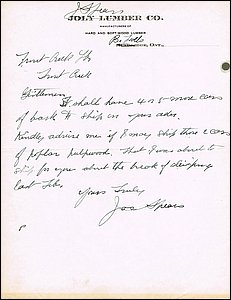 J Spears
JOLY LUMBER CO.
MANUFACTURERS OF
HARD AND SOFT WOOD LUMBER
Ont.
Trout Creek
Trout Creek
Gentlemen
I shall have 4 or 5 more cars
of bark to ship on your order.
Kindly advise me if I may ship those 2 cars
of poplar pulpwood, that I was about to
for you about the break of
last
Yours Truly
Jos Spears